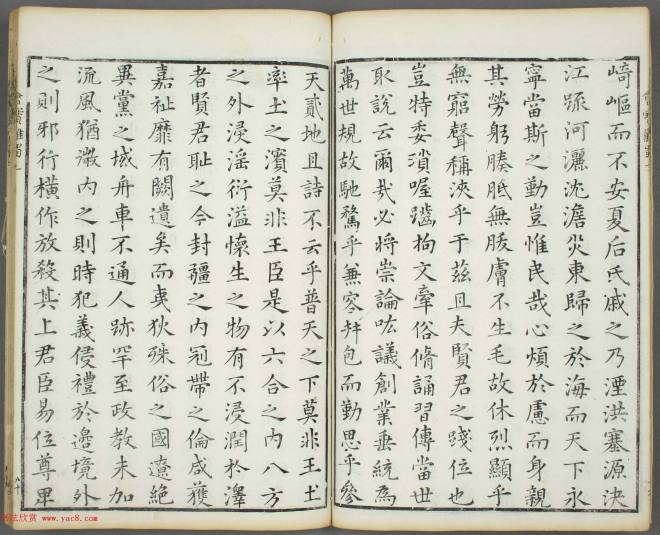 崎嶇而不安夏后氏戚之乃湮洪塞源決
江疏河灑沈澹災東歸之於海而天下永
寧當斯之勤豈惟民哉心煩於慮而身親
其勞躬腠胝無胈膚不生毛故休烈顯乎
無窮聲稱浹乎于茲且夫賢君之踐位也
豈特委瑣喔齪拘文牽俗脩誦習傳當世
取說云爾哉必將崇論吰議創業垂統為
萬世規故馳騖乎兼容并包而勤思乎參
天貳地且詩不云乎普天之下莫非王土
率土之濱莫非王臣是以六合之內八方
之外浸淫衍溢懷生之物有不浸潤於澤
者賢君恥之今封疆之內冠帶之倫咸獲
嘉祉靡有闕遺矣而夷狄殊俗之國遼絕
異黨之域舟車不通人跡罕至政教未加
流風猶微內之則時犯義侵禮於邊境外
之則邪行橫作放殺其上君臣易位尊卑
書法欣赏 www.yac8.com